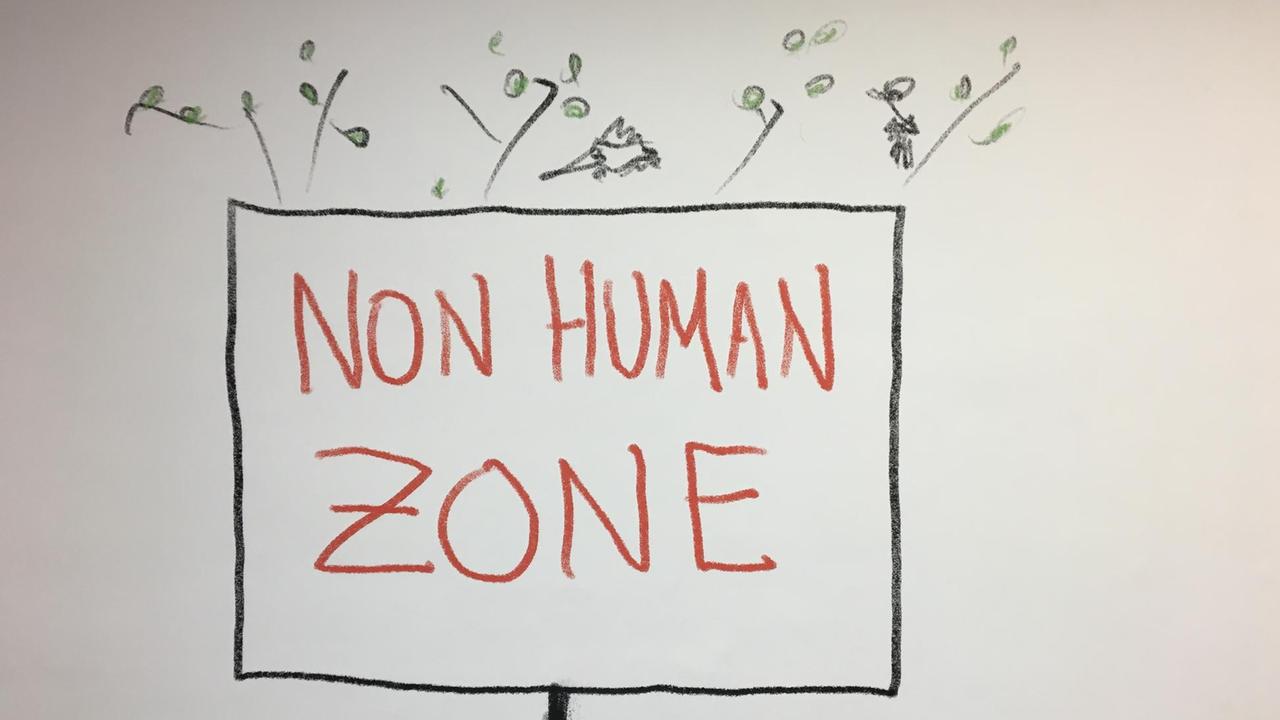 NON HUMAN
ZONE